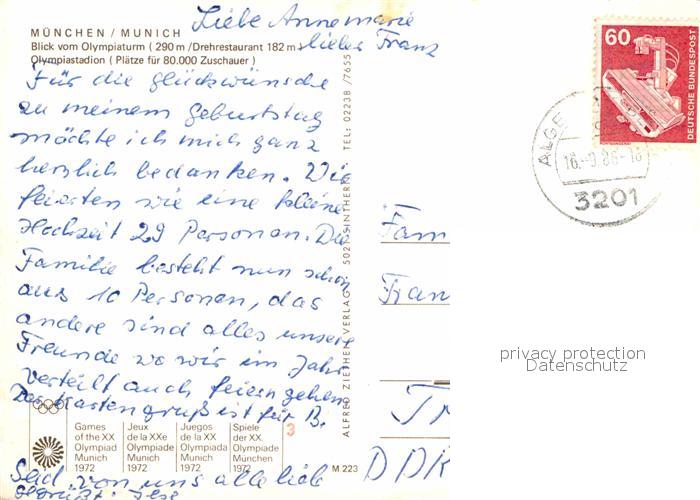 Liebe Annemarie
lieber Franz
MÜNCHEN / MUNICH
Blick vom Olympiaturm ( 290 m /Drehrestaurant 182 m
Olympiastadion ( Plätze für 80.000 Zuschauer )
Für die glückwünsche
zu meinem Geburtstag
möchte ich mich ganz
herzlich bedanken. Wir
feierten wie eine kleine
Hochzeit 29 Personen. Die
Familie besteht nun schon
aus 10 Personen, das
andere sind alles unsere
Freunde wo wir im Jahr
verteilt auch feiern gehen
Der Kartengruß ist für B.
Seid von uns alle liebe
gegrüßt. Ilse
Games
of the XX
Olympiad
Munich
1972
Jeux
de la XXe
Olympiade
Munich
1972
Juegos
de la XX
Olympiada
Munich
1972
Spiele
der XX.
Olympiade
München
1972
3
M 223
ALFRED ZIETHEN VERLAG, 502 SINTHERN TEL: 02238 /7655
60
DEUTSCHE BUNDESPOST
ALGE
3201
Fam
Fran
DDR
privacy protection
Datenschutz